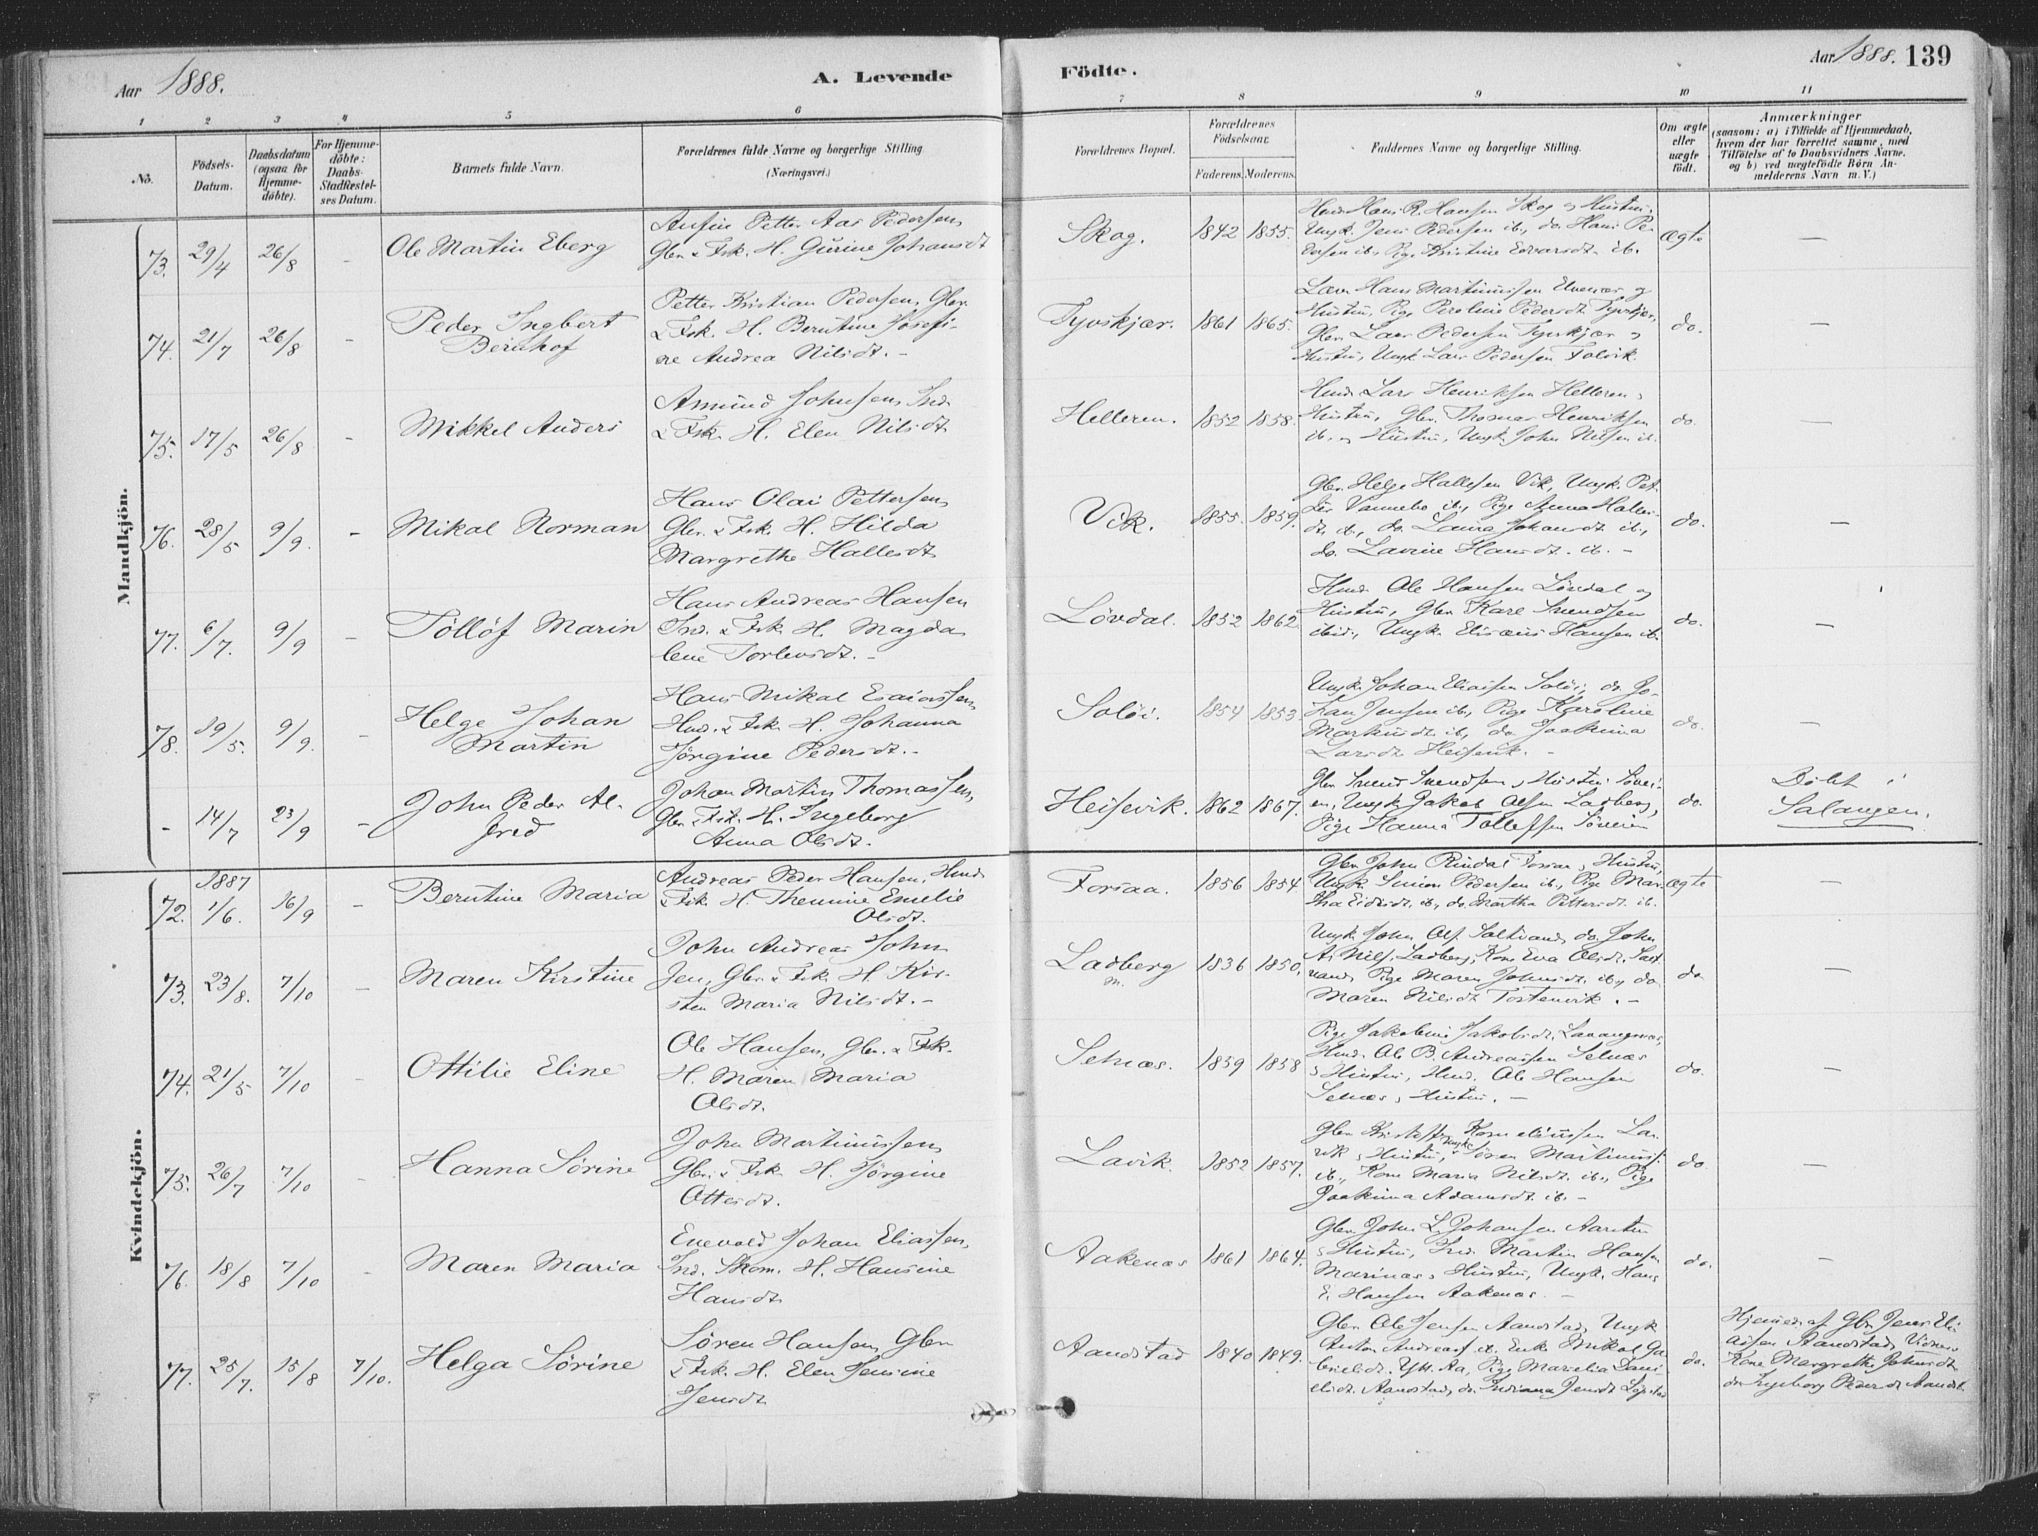 Aar 1888.
A. Levende Födte.
Aar 1888. 139
1 2 3 4 5 6 7 8 9 10 11
No.
Födsels-Datum.
Daabsdatum (ogsaa for Hjemmedöbte).
For Hjemmedöbte: Daabs-Stadfæstelses Datum.
Barnets fulde Navn.
Forældrenes fulde Navne og borgerlige Stilling (Næringsvei.)
Forældrenes Bopæl.
Forældrenes Födselsaar.
Faderens. Moderens.
Faddernes Navne og borgerlige Stilling.
Om ægte eller uægte födt.
Anmærkninger
(saasom: a) i Tilfælde af Hjemmedaab,
hvem der har forrettet samme, med
Tilföielse af to Daabsvidners Navne.
og b) ved uægtefödte Börn An-
melderens Navn m. V.)
Mandkjön.
73. 29/4 26/8 - Ole Martin Eberg
Petter Aas Pedersen,
Gbr. & Fsk. H. Gurine Johansdt
Skog. 1842 1855.
Hmd Hans R. Hansen Skog og Hustru,
Ungk. Jens Pedersen ib., do. Hans Pe-
dersen ib., Pige Kristine Edvardsdt. ib.
ægte —
74. 21/7 26/8 - Peder Ingbert
Bernhof
Petter Kristian Pedersen, Gbr.
& Fsk. H. Berntine Josefi-
ne Andrea Nilsdt. -
Tyvskjær. 1861 1865.
Hans Martinussen
Hustru, Pige Peroline Pedersdt. Tyvskjær,
Gbr. Lars Pedersen Tyvskjær og
Hustru, Ungk. Lars Pedersen
do. —
75. 17/5 26/8 - Mikkel Anders
Amund Johnsen, Ind.
& Fsk. H. Elen Nilsdt
Helleren. 1852 1858.
Hmd. Lars Henriksen Helleren,
Hustru, Gbr. Thomas Henriksen
ib., og Hustru, Ungk. John Nilsen ib.
do. —
76. 28/5 9/9. - Mikal Norman
Hans Olai Pettersen,
Gbr. & Fsk. H. Hilda
Margrethe Hallesdt
Vik. 1855. 1859.
Gbr. Helge Hallesen Vik, Ungk. Pet-
ter Vannebo ib., Pige Anna Halles-
dt. ib., do. Johansdt ib.,
do. Lavine Hansdt. ib. -
do. —
77. 6/7. 9/9 - Tollöf Marin
Hans Andreas Hansen
Ind. & Fsk. H. Magda
lene Torlevsdt. -
Lövdal. 1852 1862
Hmd. Ole Hansen Lövdal og
Hustru, Gbr. Kare Svendsen
ibid., Ungk. Elisæus Hansen ib.
do. —
78. 19/5. 9/9. - Helge Johan
Martin
Hans Mikal Esaiassen,
Hmd. & Fsk. H. Johanna
Jörgine Pedersdt. -
Solöi. 1854 1853.
Ungk. Johan Eliasen Solöi, do. Jo-
han Jensen ib., Pige Karoline
Markusdt ib., do Joakima
Larsdt -
do. —
- 14/7 23/9 - John Peder Al-
fred
Johan Martin Thomassen,
Gbr. & Fsk. H. Ingeborg
Anna Olsdt.
Heisevik. 1862 1867.
Gbr. Svend Svendsen, Hustru
Ungk Jakob Olsen Ladberg,
Pige Hanna Tollefsen
do.
Döbt i
Salangen.
Kvindekjön.
72. 1887 1/6. 16/9 - Berntine Maria
Andreas Peder Hansen, Hmd.
& Fsk. H. Themine Emelie
Olsdt.
Forsaa. 1856 1854
Gbr. John Rindal Forsaa, Hustru,
Ungk. Simon Pedersen ib., Pige Mar-
tha Eidisdt. ib., do. Martha Pettersdt. ib.
ægte —
73. 23/8. 7/10 - Maren Kirstine
John Andreas John-
sen, Gbr. & Fsk. H. Kir-
sten Maria Nilsdt. -
Ladberg 1836 1850.
Ungk. John Ols. do. John
A. Nils. Ladberg, Kone Eva Olsdt.
Pige Maren Johnsdt. ib., do
Maren Nilsdt -
do. —
74. 21/5 7/10 - Ottilie Eline
Ole Hansen, Gbr. & Fsk.
H. Maren Maria
Olsdt.
Selnæs. 1859 1858
Pige Jakobine Jakobsdt.
Hmd. Ole B. Andreassen Selnæs
& Hustru, Hmd. Ole Hansen
Selnæs, Hustru. -
do. —
75. 26/7 7/10 - Hanna Sörine
John Martinussen,
Gbr. & Fsk. H. Jörgine
Ottesdt.
Lavik. 1852 1857.
Gbr. Kristoffer Korneliussen La-
vik, Hustru, Ungk. Sören Martinuss.
ib., Kone Maria Nilsdt. ib., Pige
Joakima Adamsdt ib. -
do. —
76. 18/8 7/10 - Maren Maria
Enevold Johan Eliassen,
Ind. Skom. H. Hansine
Hansdt
Aakenæs 1861 1864.
Gbr. John L. Johansen
& Hustru, Ind. Martin Hansen
Marinæs, Hustru, Ungk. Hans
E. Hansen Aakenæs. -
do. —
77. 25/7. 15/8 7/10. Helga Sörine
Sören Hansen, Gbr.
& Fsk. H. Elen Jensine
Jensdt
Aandstad 1840 1849.
Gbr. Ole Jensen Aandstad, Ungk.
Anton Andreas. Enke Mikal Ga-
brielsdt. Pige Marselia Dani-
elsdt. Aandstad, do. Indiana Jensdt
do.
Hjemmed. af Gbr. Jens Eli-
assen Aandstad, Vidner
Kone Margrethe Johnsdt
do Ingeborg Pedersdt Aandst.